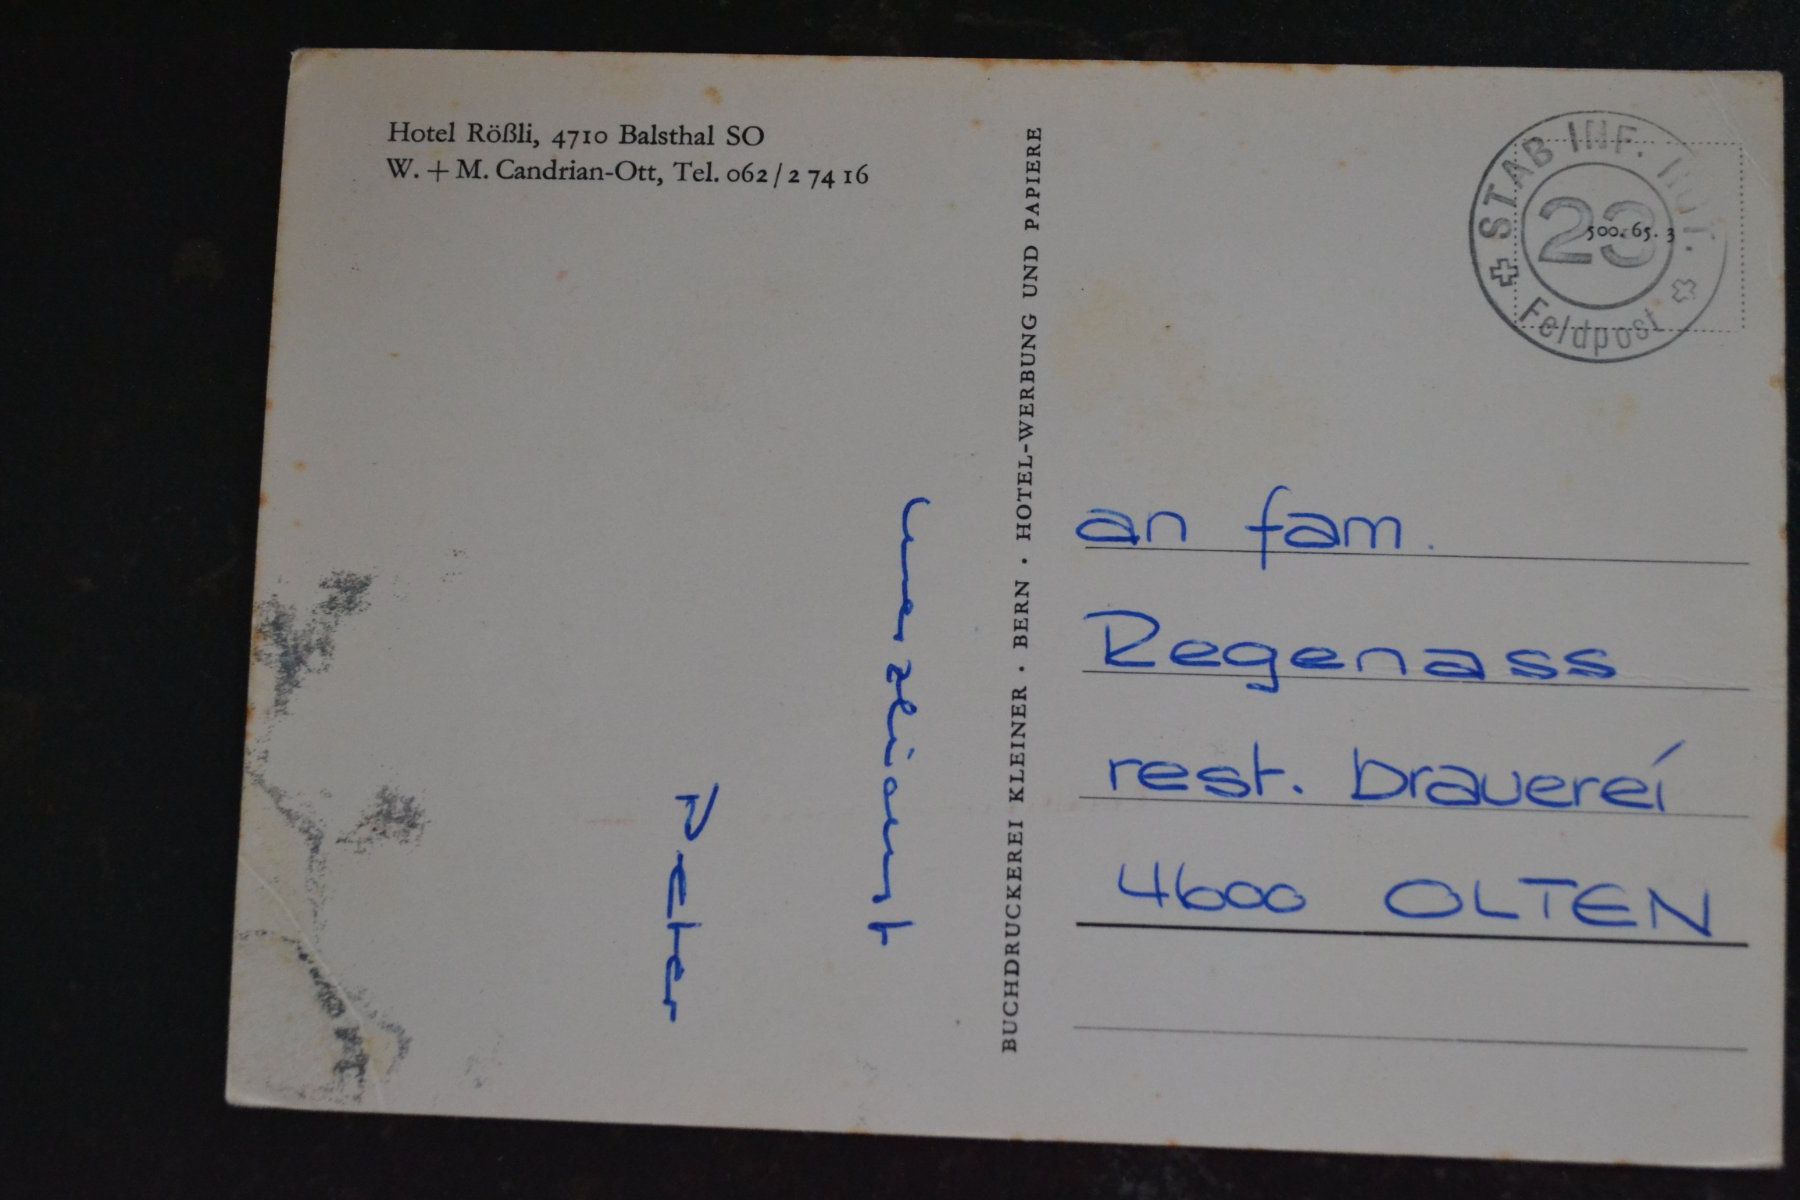 Hotel Rößli, 4710 Balsthal SO
W. + M. Candrian-Ott, Tel. 062/2 74 16
BUCHDRUCKEREI KLEINER · BERN · HOTEL-WERBUNG UND PAPIERE
STAB INF. ROT.
23
Feldpost
500.65.3
an fam.
Regenass
rest. brauerei
4600 OLTEN
Peter